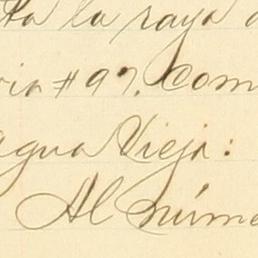 ta la raya d
ria #97. Com
agua Vieja:
Al núme